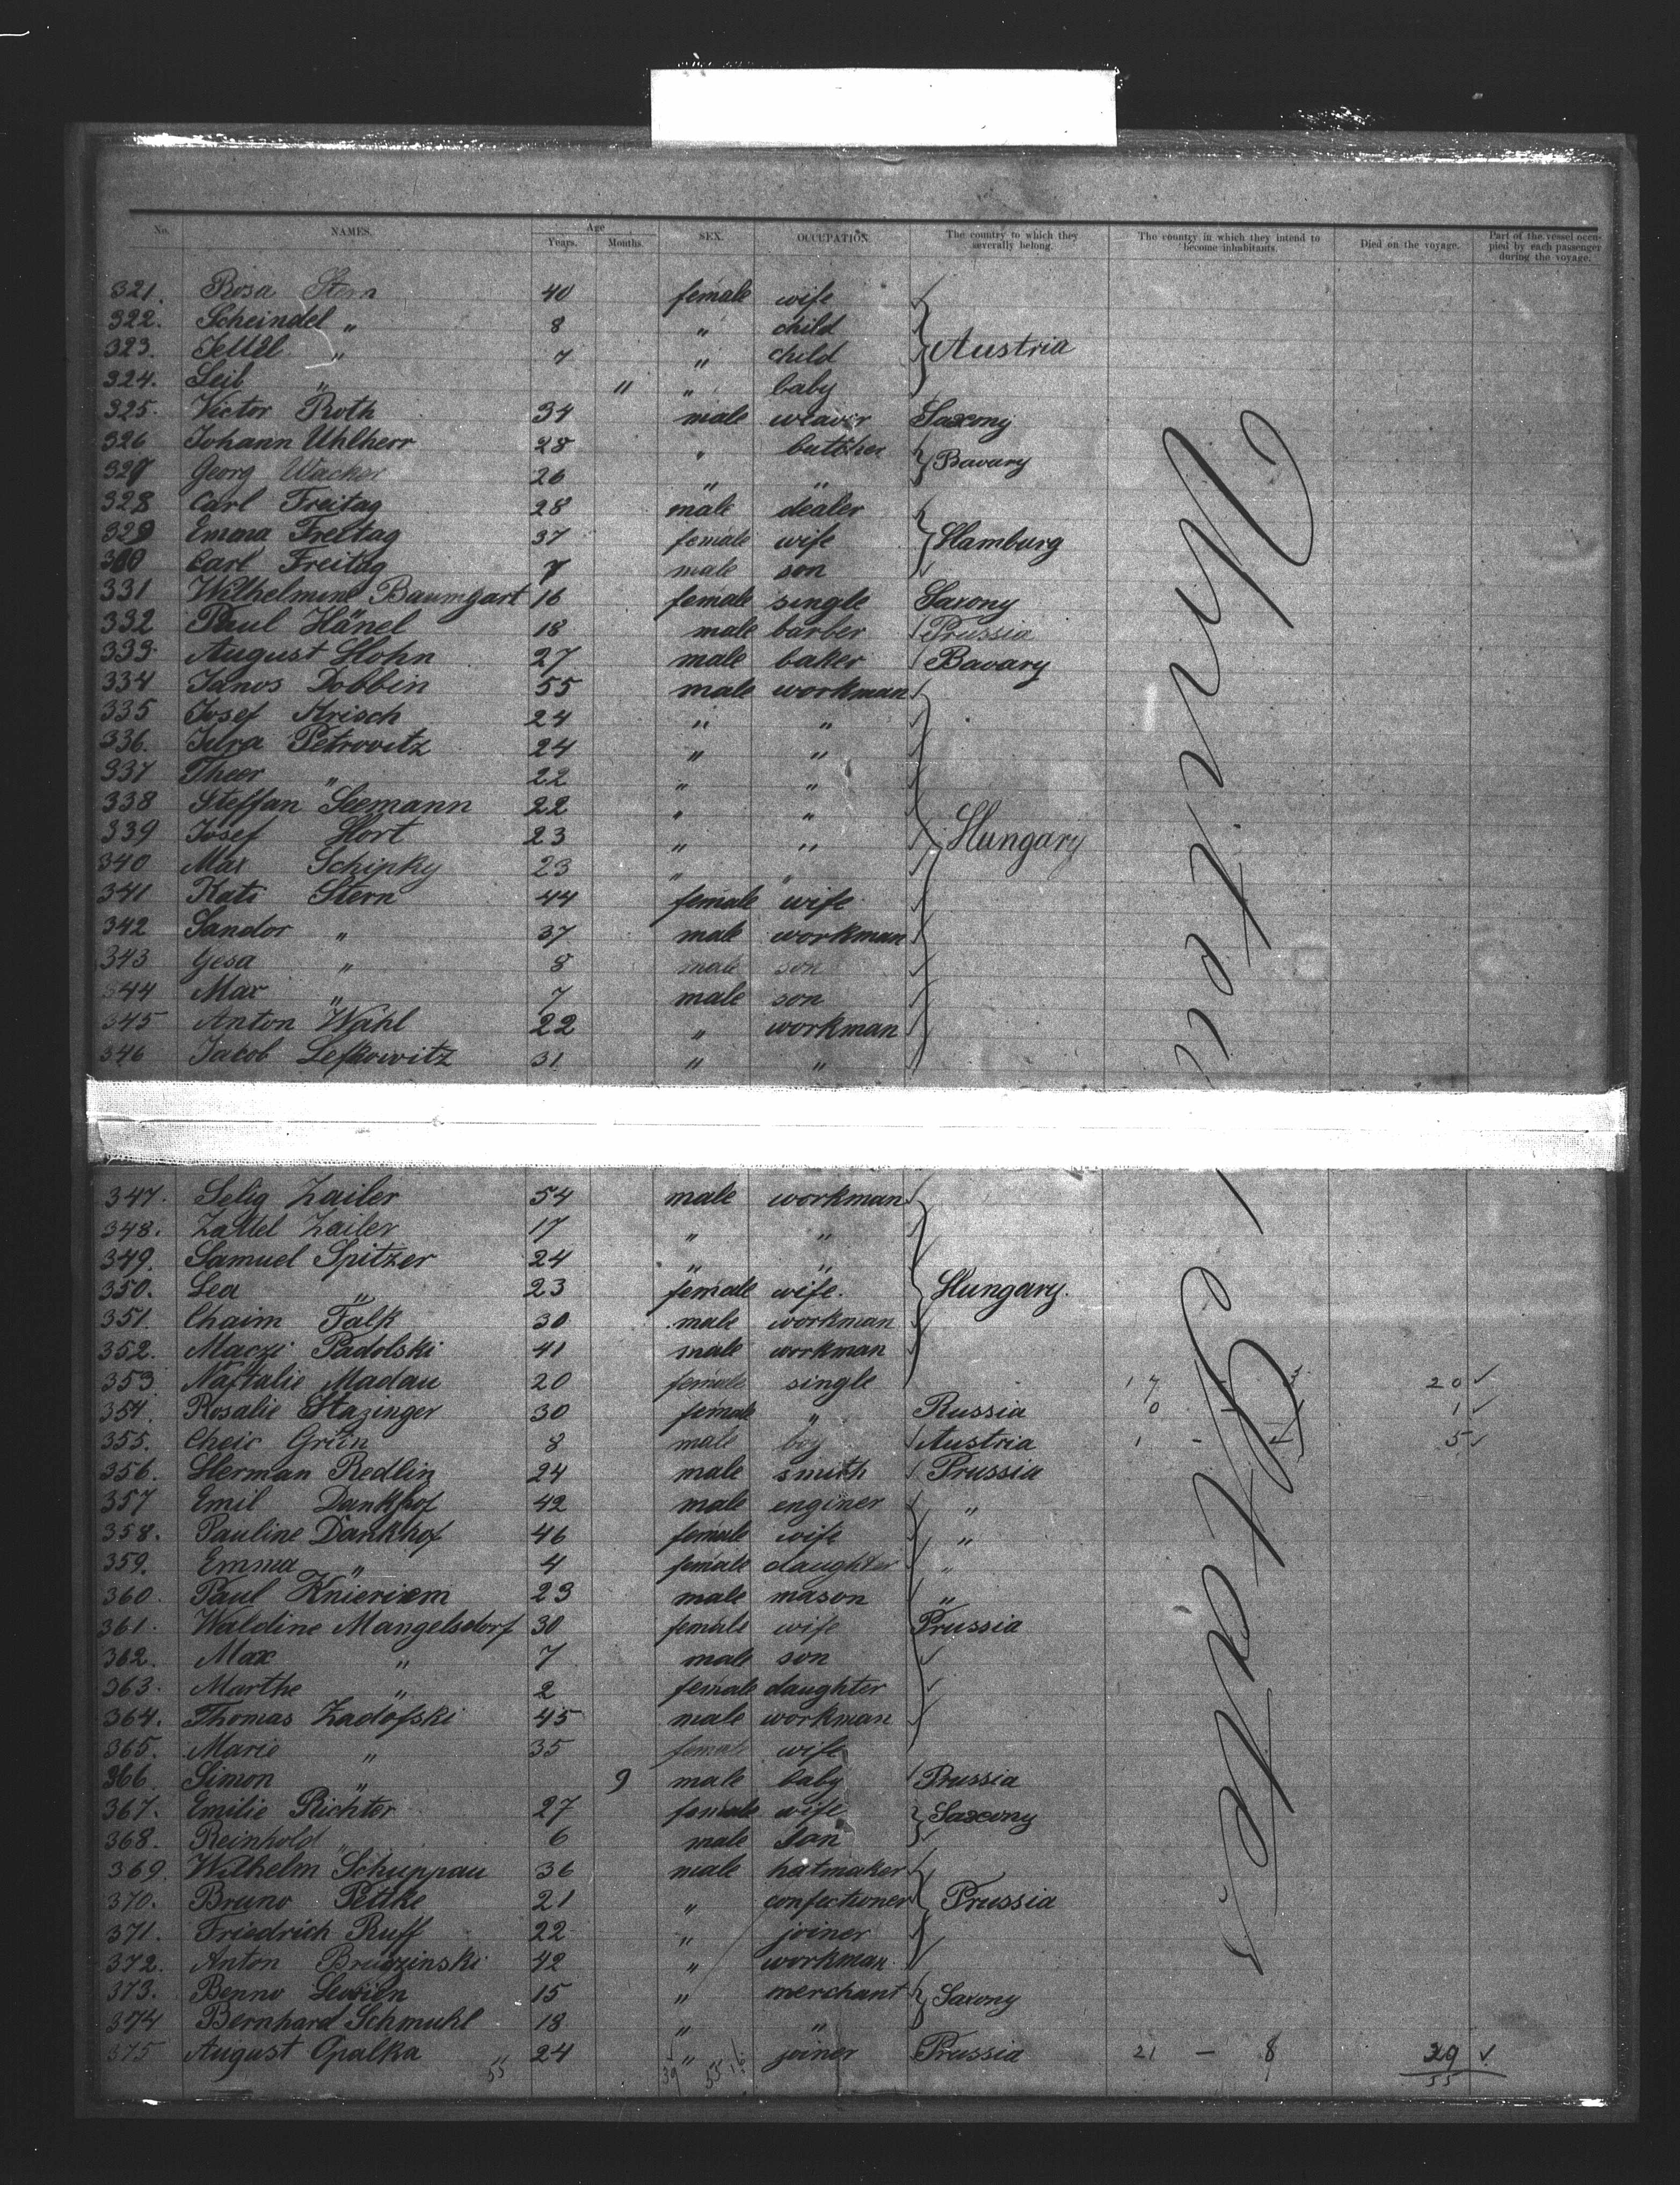 No. NAMES. Age Years. Months. SEX. OCCUPATION The country to which they severally belong. The country in which they intend to become inhabitants. Died on the voyage. Part of the vessel occupied by each passenger during the voyage.
321. Rosa Stern 40 female wife
322. Scheindel " 8 " child
323. " 7 " child Austria
324. Leib " 11 " baby
325. Victor Roth 34 male weaver Saxony
326 Johann Uhlherr 28 " butcher
327 Georg Wacker 26 " " Bavary
328 Carl Freitag 28 male dealer
329 Emma Freitag 37 female wife Hamburg
330 Carl Freitag 7 male son
331 Wilhelmine Baumgart 16 female single Saxony
332 Paul Hänel 18 male barber Prussia
333. August Hohn 27 male baker Bavary
334 Janos Dobbin 55 male workman
335 Josef Arisch 24 " "
336. Jura Petrovitz 24 " "
337 Theer " 22 " "
338 Steffan Seemann 22 " "
339 Josef Hort 23 " " Hungary
340 Max Schipky 23 " "
341 Kati Stern 44 female wife
342 Sandor " 37 male workman
343 Gesa " 8 male son
344 Max " 7 male son
345 Anton Wahl 22 " workman
346 Jakob Lefkowitz 31 " "
347. Selig Zailer 54 male workman
348. Zallel Zailer 17 " "
349. Samuel Spitzer 24 " "
350. Lea " 23 female wife. Hungary.
351. Chaim Falk 30 male workman
352. Maczi Padolski 41 male workman
353. Naftalie Madau 20 female single 17 - 3 20
354. Rosalie Stazinger 30 female " Russia 0 1 1
355. Cheic Grün 8 male boy Austria 1 - 5
356. Herman Redlin 24 male smith Prussia
357 Emil Dankhof 42 male enginer "
358. Pauline Dankhof 46 female wife "
359. Emma " 4 female daughter "
360. Paul Knieriem 23 male mason "
361. Waldine Mangelsdorf 30 female wife Prussia
362. Max " 7 male son
363. Marthe " 2 female daughter
364. Thomas Zadofski 45 male workman
365. Marie " 35 female wife
366. Simon " 9 male baby Prussia
367. Emilie Richter 27 female wife Saxony
368. Reinhold " 6 male son
369. Wilhelm Schuppau 36 male hatmaker
370. Bruno Pettke 21 " confectioner Prussia
371. Friedrich Ruff 22 " joiner
372. Anton Bruszinski 42 " workman
373. Benno Lewien 15 " merchant Saxony
374 Bernhard Schmuhl 18 " "
375 August Opalka 24 " joiner Prussia 21 - 8 29
55 39 55 16 55